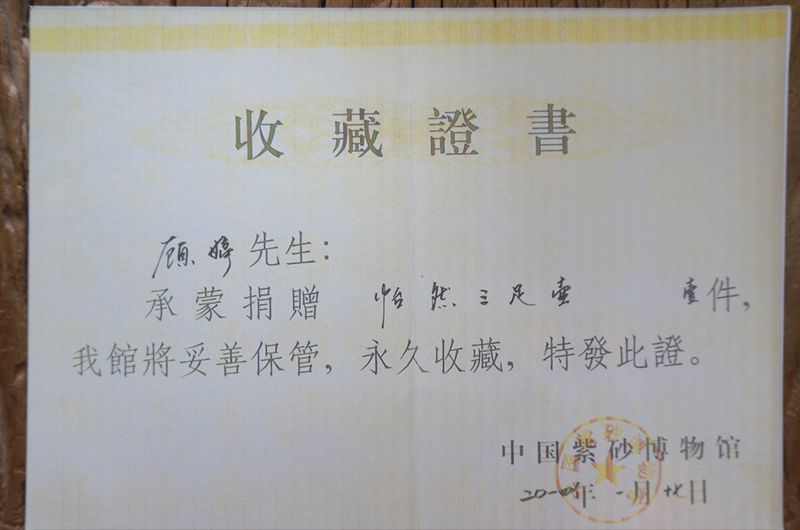 收藏證書
顾婷先生:
承蒙捐贈 怡然三足壶 壹件,
我館將妥善保管，永久收藏，特發此證。
中国紫砂博物馆
年一月十七日